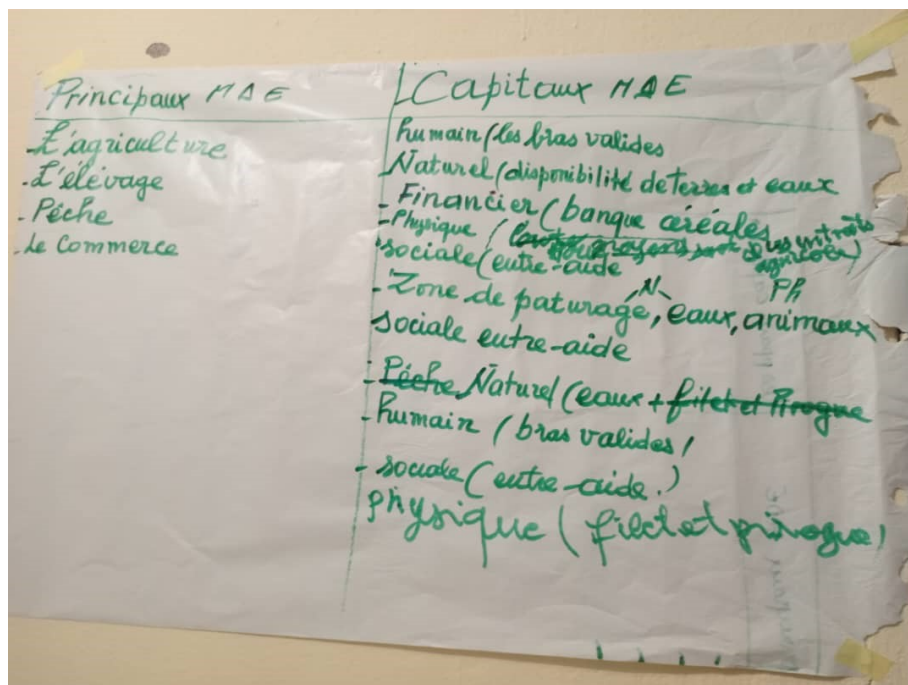 Principaux MAE
- L'agriculture
- L'élévage
- Pêche
- Le Commerce
Capitaux MAE
humain (les bras valides
Naturel (disponibilité de Terres et eaux
- Financier (banque céréales
- Physique ( des intrants agricoles)
sociale (entre-aide
- Zone de paturage, eaux, animaux
N
Ph
sociale entre-aide
- Pêche Naturel (eaux + filet et Pirogue
- humain (bras valides)
- sociale (entre-aide.)
physique (filet et pirogue)